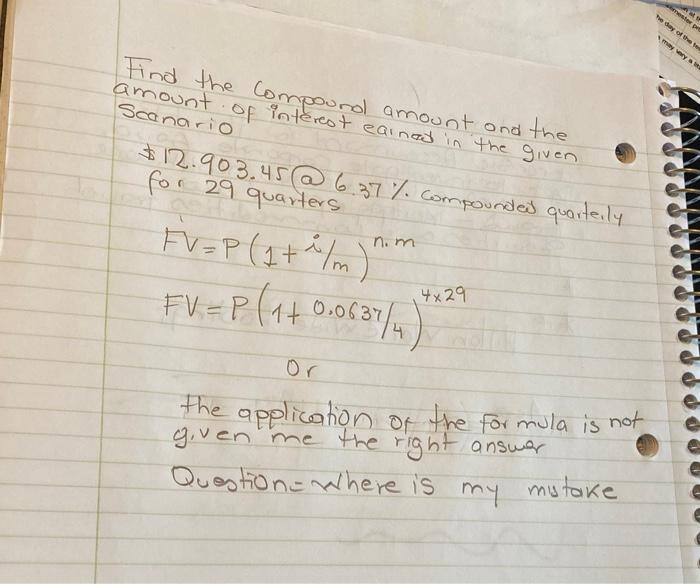 Find the Compound amount and the
amount of interest earned in the given
Scanario
$12.903.45@ 6.37% compounded quarterly
for 29 quarters
FV=P(1+i/m)^n.m
FV=P(1+0.0637/4)^4x29
Or
the application of the formula is not
given me the right answer
Question= where is my mstake
semester
the day of the
may vary a